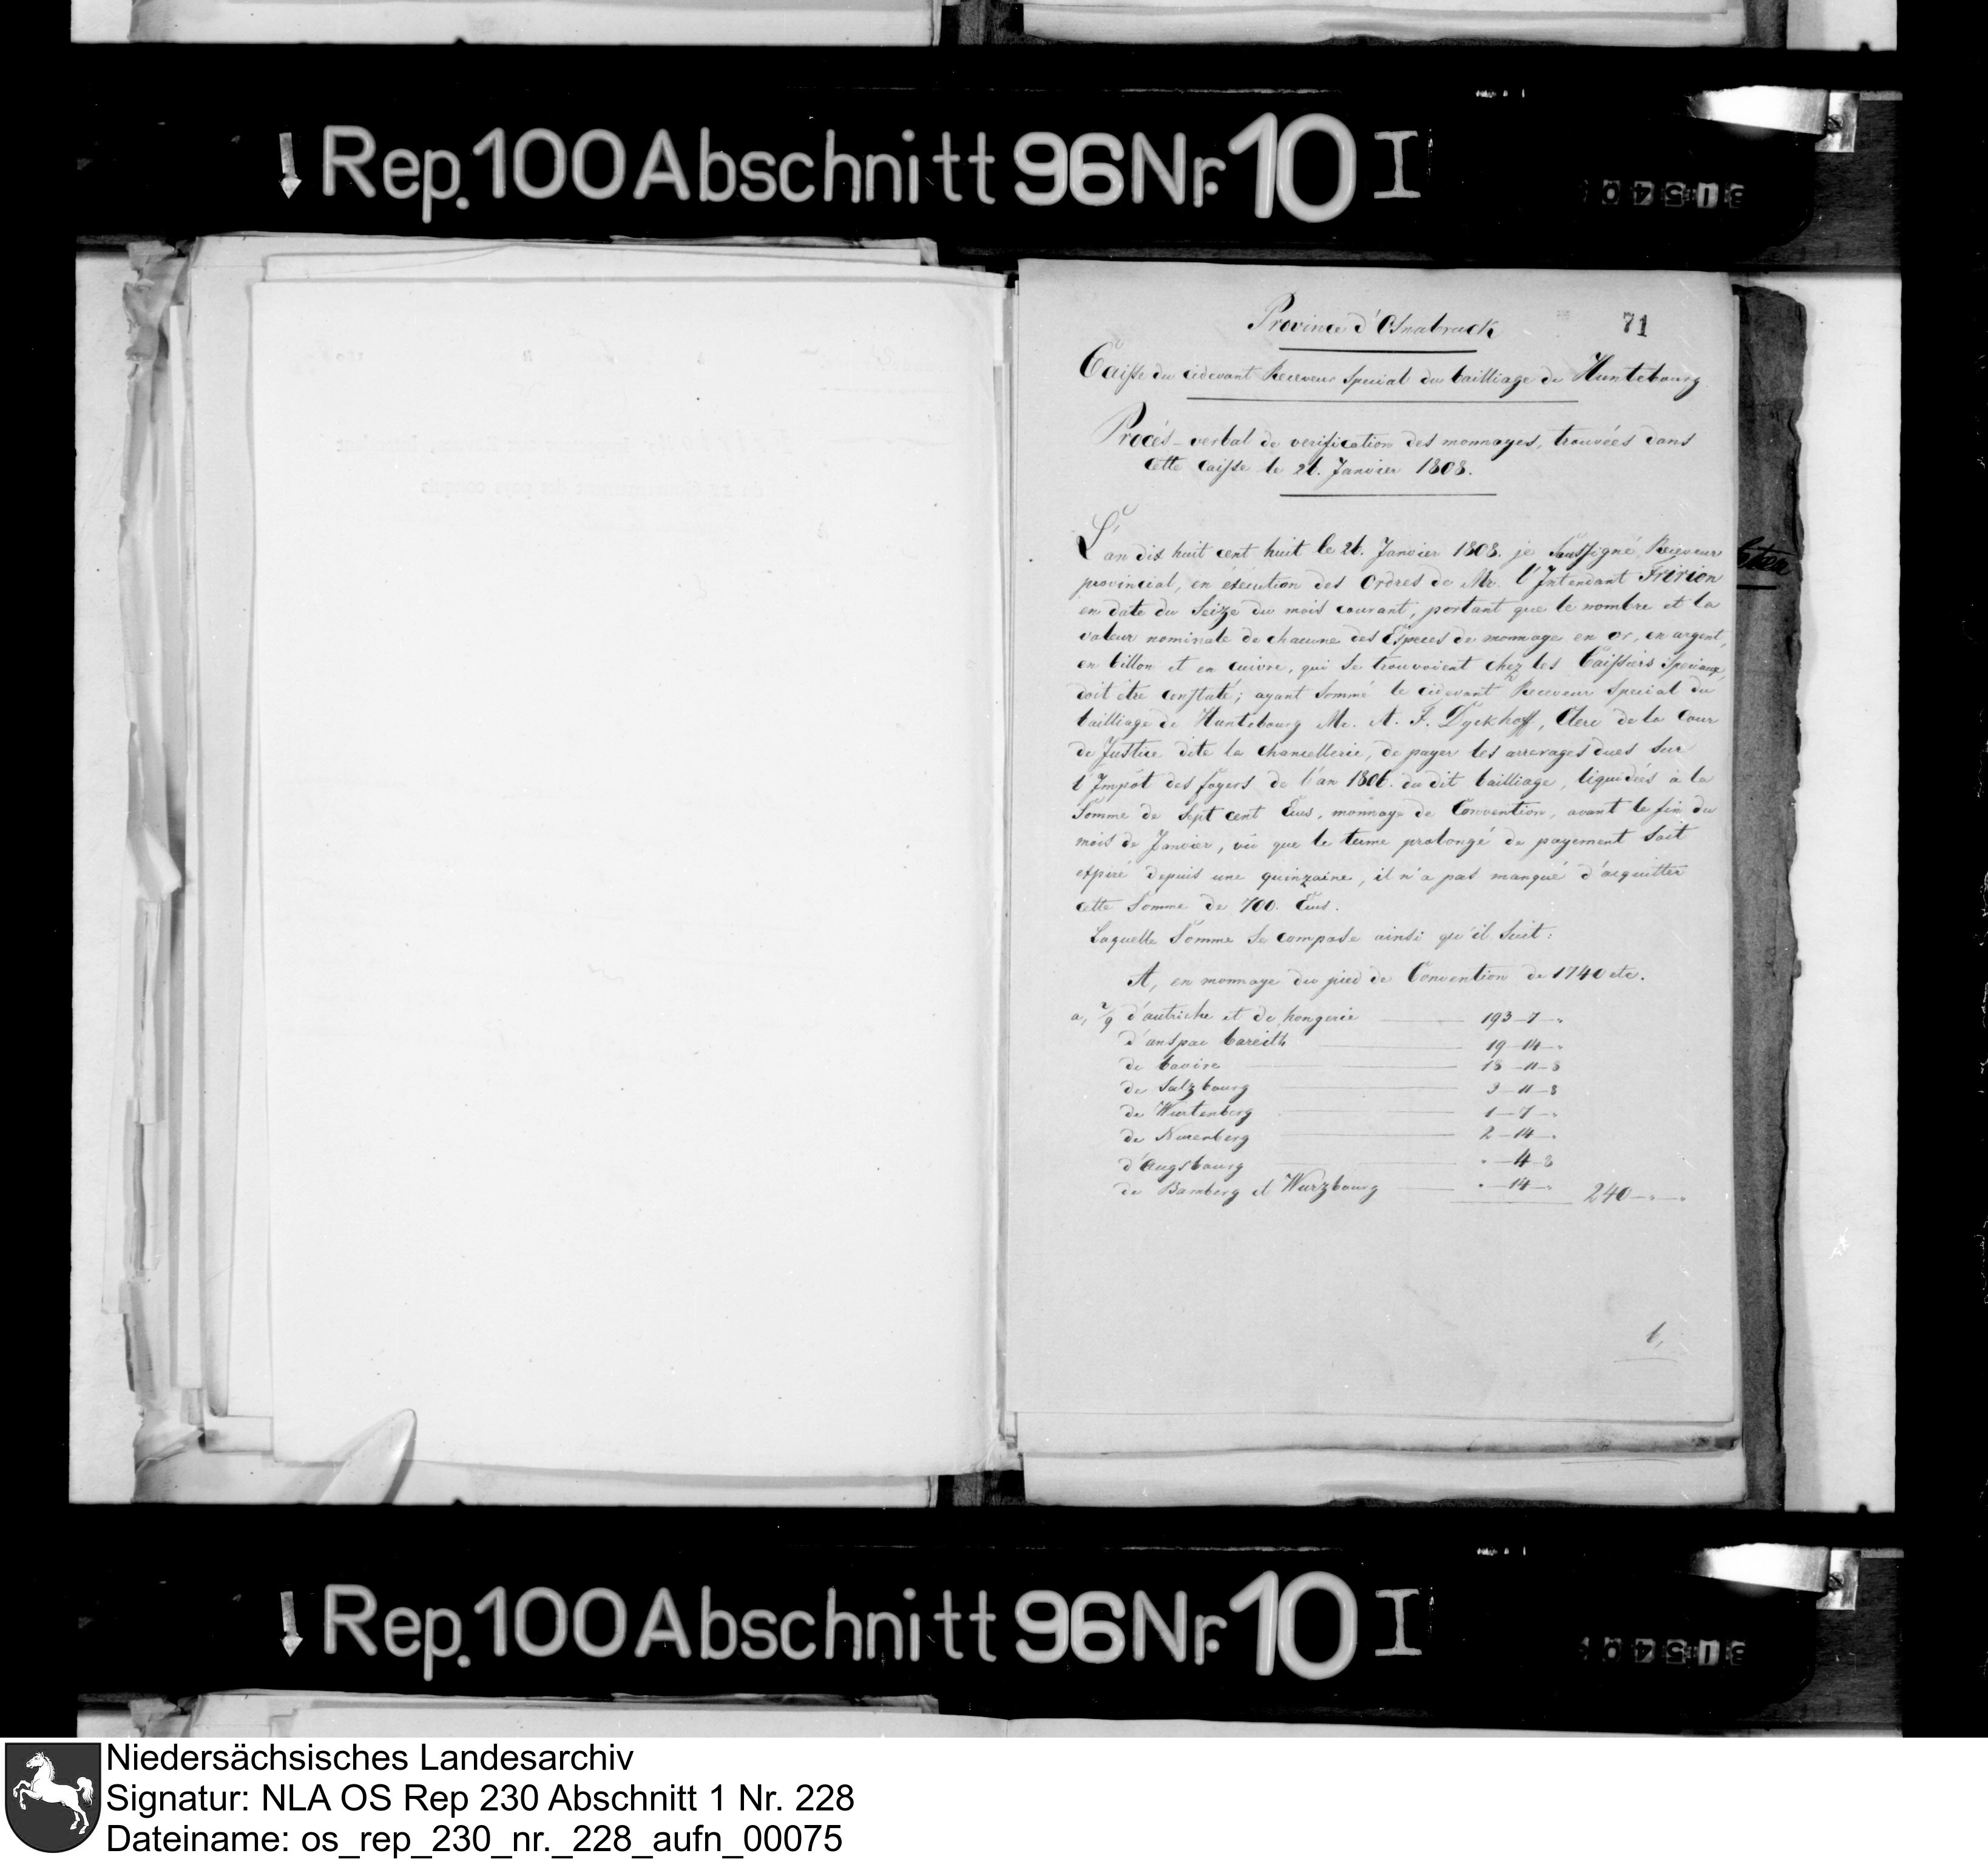 Rep. 100 Abschnitt 96 Nr. 10 I
71
Province d'Osnabruck
Caisse du cidevant Receveur special du bailliage de Huntebourg
Procés-verbal de verification des monnayes, trouvées dans
cette caisse le 26. Janvier 1808.
L'an dix huit cent huit le 26. Janvier 1808. je Soussigné Receveur
provincial, en éxecution des Ordres de Mr. l'Intendant Fririon
en date du Seize du mois courant, portant que le nombre et la
valeur nominale de chacune des Especes de monnaye en or, en argent,
en billon et en cuivre, qui se trouvoient chez les Caissiers speciaux,
doit être constaté; ayant sommé le cidevant Receveur special du
bailliage de Huntebourg Mr. A. F. Dyckhoff, Clerc de la Cour
de Justice dite la Chancellerie, de payer les arrerages dues sur
l'Impôt des foyers de l'an 1806. du dit bailliage, liquidées à la
Somme de Sept cent Ecus, monnaye de Convention, avant le fin du
mois de Janvier, vû que le terme prolongé de payement soit
expiré depuis une quinzaine, il n'a pas manqué d'acquitter
cette Somme de 700. Ecus.
Laquelle Somme se compose ainsi qu'il suit:
A, en monnaye du pied de Convention de 1740 etc.
a, 2/9 d'autriche et de hongerie 193-7-"
d'anspac bareith 19-14-"
de baviere 18-11-8
de Salzbourg 3-11-8
de Wurtenberg 1-7-"
de Nurenberg 2-14-"
d'Augsbourg "-4-8
de Bamberg et Wurzbourg "-14-" 240-"-"
b,
Rep. 100 Abschnitt 96 Nr. 10 I
Niedersächsisches Landesarchiv
Signatur: NLA OS Rep 230 Abschnitt 1 Nr. 228
Dateiname: os_rep_230_nr._228_aufn_00075